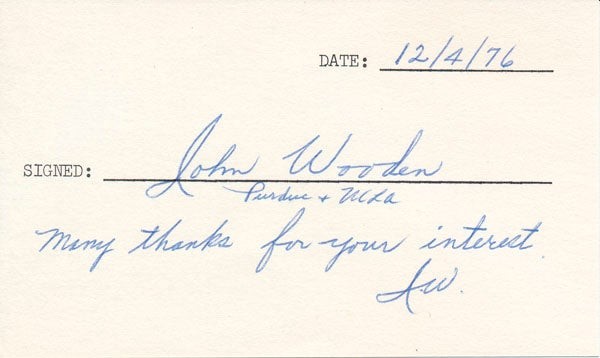 DATE: 12/4/76
SIGNED: John Wooden
Purdue + UCLA
Many thanks for your interest.
J.W.